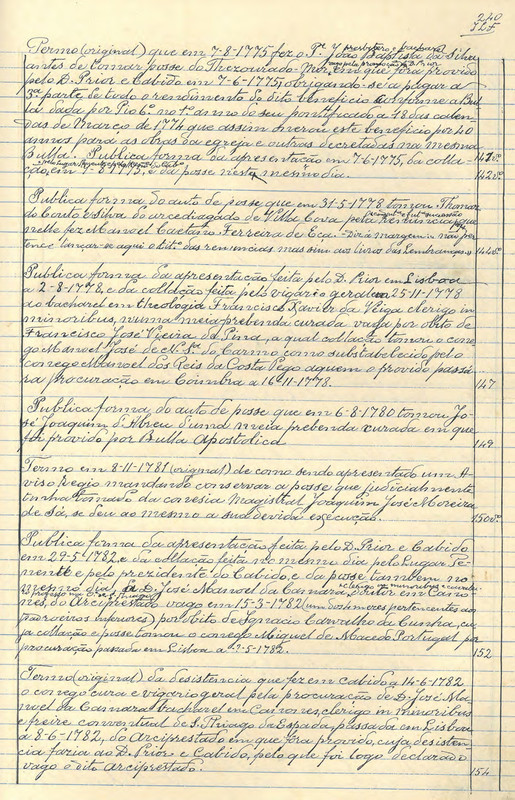 240
Termo (original) que em 7-8-1775 fez o Pe. João Baptista da Silva
presbytero e bacharel
antes de tomar posse do Thezourado-Mór, em que fora provido
pelo D. Prior e Cabido em 7-6-1775, obrigando-se a pagar a
3ª parte de todo o rendimento do dito beneficio conforme a Bul-
la dada por Pio 6º no 1º anno do seu pontificado a 18 das calen-
das de Março de 1774 que assim onerou este beneficio por 40
annos para as obras da egreja e outras decretadas na mesma
Bulla. Publica forma da apresentação em 7-6-1775, da colla- 141vº
ção, em 7-8-1775, e da posse nesta mesmo dia. 142vº
Publica forma do auto de posse que em 31-5-1778 tomou Thomaz
do Couto e Silva do arcediagado de Villa Cova pela renuncia que
nelle fez Manoel Caetano Ferreira de Eça. Diz á margem: não per-
tence lançar-se aqui o titº das renuncias mas sim aos livros das lembranças. 144vº
Publica forma da apresentação feita pelo D. Prior em Lisboa
a 2-8-1778, e da collação feita pelo vigario geral em 25-11-1778
ao bacharel em theologia Francisco Xavier da Veiga clerigo in
minoribus, numa meia prebenda curada vaga por obito de
Francisco José Vieira de Pina, a qual collação tomou o cone-
go Manoel José de N. Sª do Carmo como substabelecido pelo
conego Manoel dos Reis da Costa Pego aquem o provido passá-
ra procuração em Coimbra a 16-11-1778. 147
Publica forma do auto de posse que em 6-8-1780 tomou Jo-
sé Joaquim d'Abreu d'uma meia prebenda curada em que
foi provido por Bulla Apostolica 149
Termo em 8-11-1781 (original) de como sendo apresentado um A-
viso Regio mandando conservar a posse que judicialmente
tinha tomado da conesia Magistral Joaquim José Moreira
de Sá, se deu ao mesmo a sua devida execução. 150vº
Publica forma da apresentação feita pelo D. Prior e Cabido
em 29-5-1782, e da collação feita no mesmo dia pelo Lugar Te-
nente e pelo prezidente do Cabido, e da posse tambem no
clerigo in minoribus
mesmo dia a D. José Manoel da Camara, doutor em Cano-
nes, do Arciprestado vago em 15-3-1782 (um dos menores pertencentes aos
padroeiros inferiores) por obito de Ignacio Carvalho da Cunha, cu-
ja collação e posse tomou o conego Miguel de Macedo Portugal por
procuração passada em Lisboa a 2-5-1782. 152
Termo (original) da desistencia que fez em cabido a 14-6-1782
o conego cura e vigario geral pela procuração de D. José Ma-
noel da Camara bacharel em Canones, clerigo in minoribus
e freire conventual de S. Thiago da Espada, passada em Lisboa
a 8-6-1782, do Arciprestado em que fora provido, cuja desisten-
cia fazia ao D. Prior e Cabido, pelo que foi logo declarado
vago o dito Arciprestado. 154